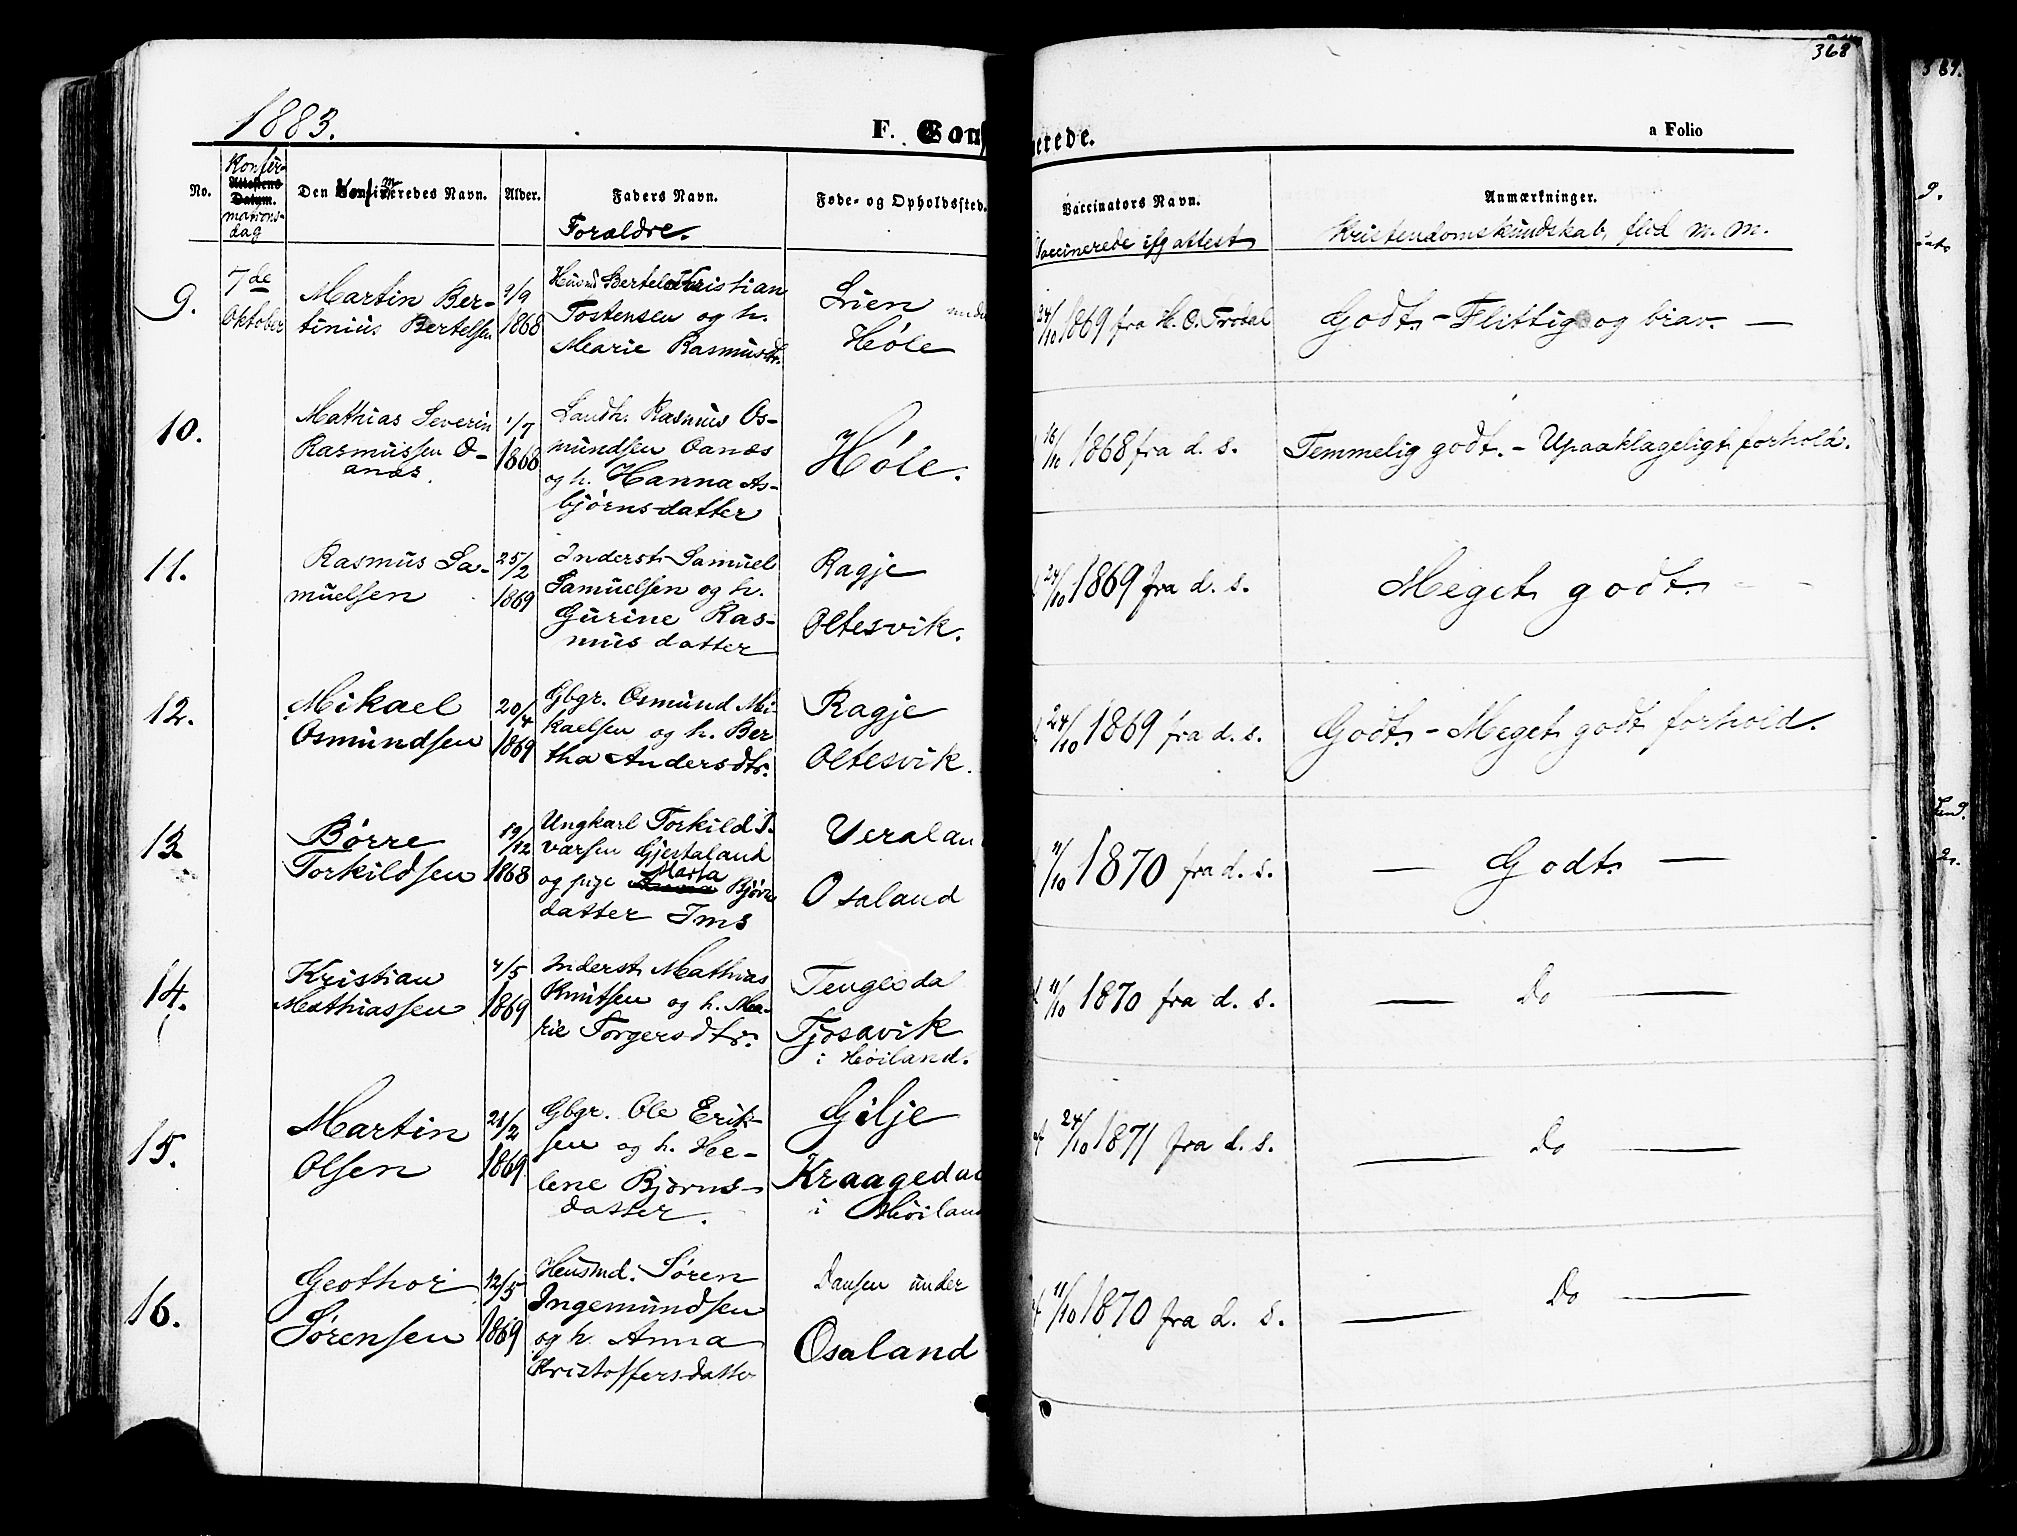 368
1883.
F. Conf
erede.
a Folio
No.
Konfir-
Attestens
Datum.
mations-
dag
Den Konfirmeredes Navn.
Alder.
Faders Navn.
Forældre.
Føde- og Opholdssted.
Vaccinators Navn.
Vaccinerede ifg attest
Anmærkninger.
Kristendomskundskab, flid m. m.
9.
7de
Oktober
Martin Ber-
tinius Bertelsen
2/9
1868
Husmd Bertel Kristian
Tostensen og h.
Marie Rasmusdtr.
Lien under
Høle
24/10 1869 fra H. O. Trodal
Godt - Flittig og brav. —
10.
Mathias Severin
Rasmussen O-
anæs.
1/7
1868
Landh. Rasmus Os-
mundsen Oanæs
og h. Hanna As-
bjørnsdatter
Høle.
1868 fra d. s.
Temmelig godt. - Upaaklageligt forhold.
11.
Rasmus Sa-
muelsen
25/2
1869
Inderst Samuel
Samuelsen og h.
Gurine Ras-
musdatter
Ragje
Oltesvik.
24/10 1869 fra d. s.
Meget godt
12.
Mikael
Osmundsen
20/4
1869
Gbgr. Osmund Mi-
kaelsen og h. Ber
tha Andersdtr.
Ragje
Oltesvik.
24/10 1869 fra d. s.
Godt. - Meget godt forhold.
13
Børre
Torkildsen
19/12
1868
Ungkarl Torkild I-
varsen Gjestaland
Marta
og pige Anna Bjørn
datter Ims
Veraland
Osaland
11/10 1870 fra d. s.
— Godt. —
14.
Kristian
Mathiassen
4/5
1869
Inderst Mathias
Knutsen og h. Ma-
rie Torgersdtr.
Tengesdal
Tjosavik
i Høiland.
11/10 1870 fra d. s.
— Do —
15.
Martin
Olsen
21/2
1869
Gbgr. Ole Erik-
sen og h. He-
lene Bjørns-
datter.
Gilje
Kraagedal
i Høiland
24/10 1871 fra d. s.
— Do —
16.
Geothor
Sørensen
12/5
1869
Husmd. Søren
Ingemundsen
og h. Anna
Kristoffersdatter
Dansen under
Osaland
11/10 1870 fra d. s.
— Do —